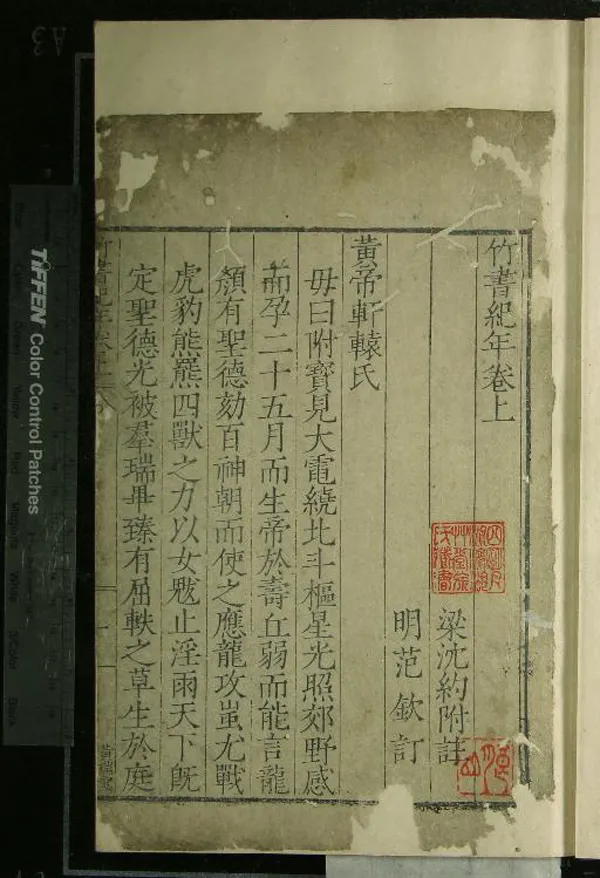 竹書紀年卷上
梁沈約附註
明范欽訂
黃帝軒轅氏
母曰附寶見大電繞北斗樞星光照郊野感
而孕二十五月而生帝於壽丘弱而能言龍
顏有聖德劾百神朝而使之應龍攻蚩尤戰
虎豹熊羆四獸之力以女魃止淫雨天下旣
定聖德光被羣瑞畢臻有屈軼之草生於庭
TIFFEN Color Control Patches
A3